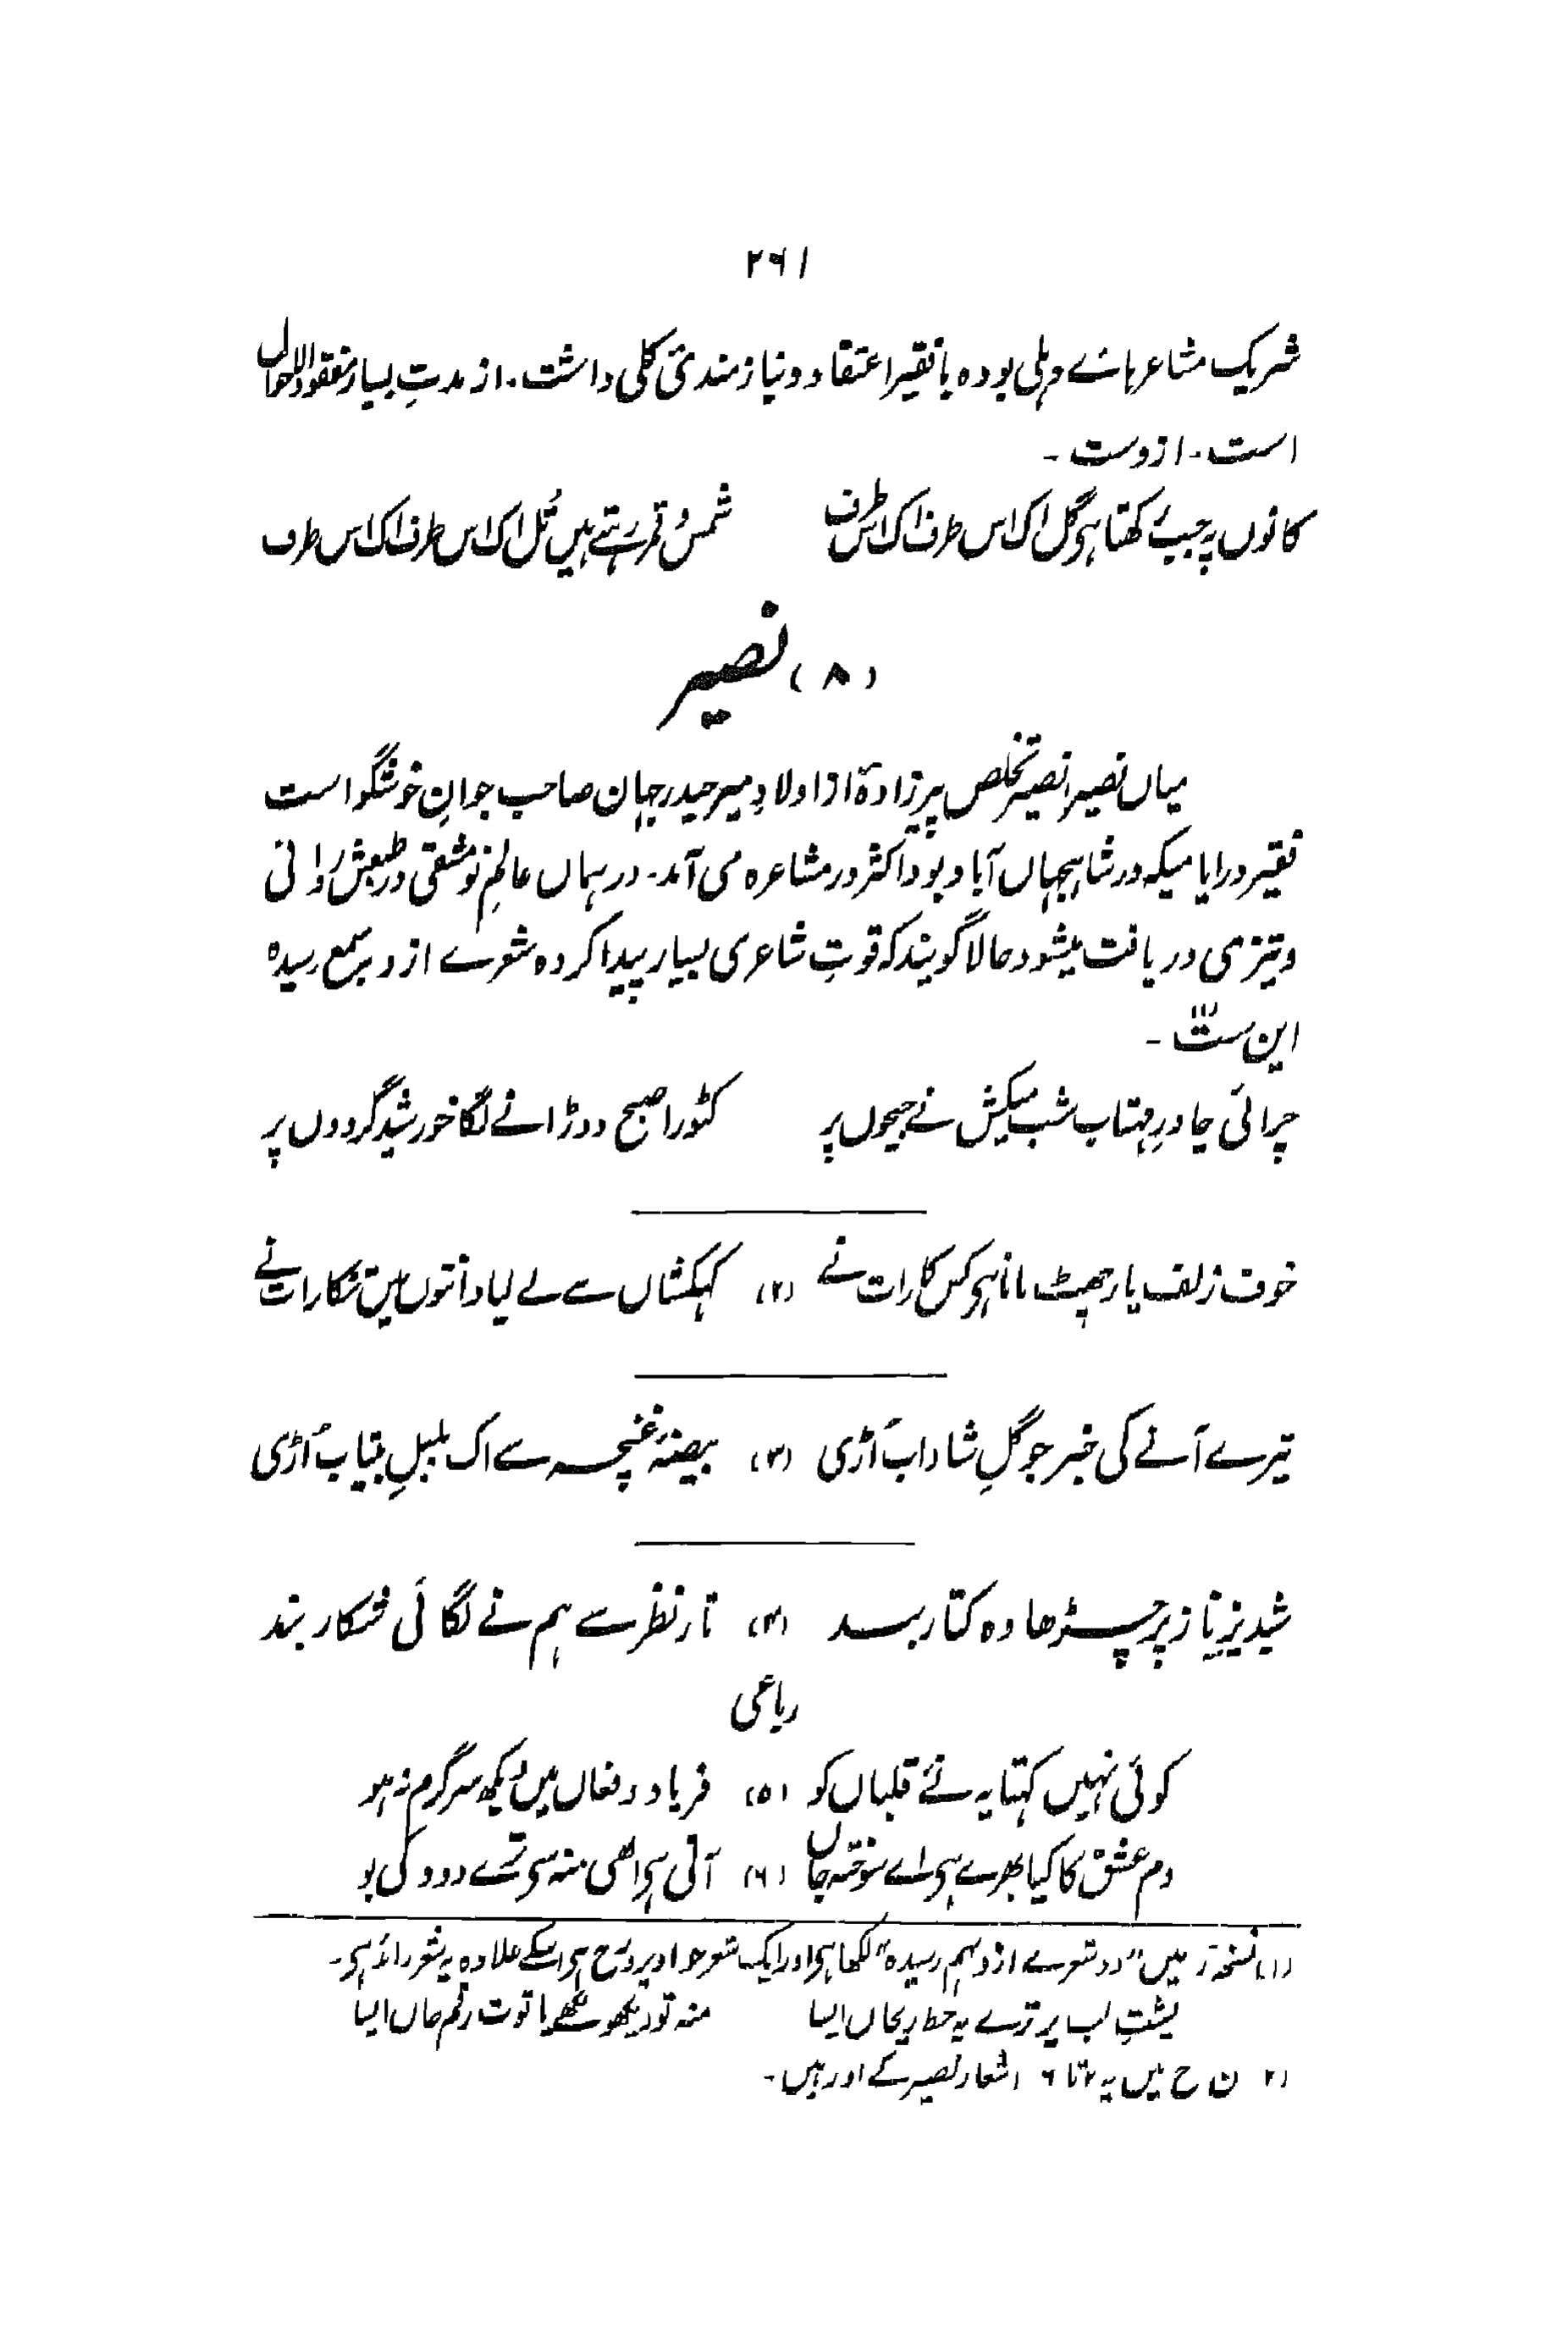 ۲۶۱
شریک مشاعرہائے دہلی بودہ با فقیر اعتقاد و نیازمندئ کلی داشت۔ از مدتِ بسیار مفقود الاحوال
است۔ ازوست۔
کانوں پہ جب رکھتا ہی گل اک اس طرف اک اس طرف شمس و قمر رہتے ہیں تُل اک اس طرف اک اس طرف
(۸) نصیر
میاں نصیر نصیر تخلص پیرزادہٴ از اولادِ میر حیدر جہان صاحب جوانِ خوشگو است
فقیر در ایامیکہ در شاہجہاں آباد بود اکثر در مشاعرہ می آمد۔ در ہماں عالمِ نومشقی در طبعش روانی
و تیزی دریافت میشود حالا گویند کہ قوتِ شاعری بسیار پیدا کردہ شعرے از و بسمع رسیدہ
این ست(۱)۔
چرائی چادرِ مہتاب شب میکش نے جیحوں پر کٹورا صبح دوڑانے لگا خورشید گردوں پر
خوف زلف یار جھپٹ مانا ہی کس کا رات نے (۲) کہکشاں سے لے لیا دانتوں میں تنکا رات نے
تیرے آنے کی خبر جو گلِ شاداب اُڑی (۳) بیضۂ غنچہ سے اک بلبلِ بیتاب اُڑی
شبدیزِ ناز پر چڑھا وہ کتار بسد (۴) تار نظر سے ہم نے لگائی شکار بند
رباعی
کوئی نہیں کہتا یہ نئے قلیاں کو (۵) فریاد و فغاں میں دیکھ سرگرم نہ ہو
دم عشق کا کیا بھرے ہی اے سوختہ جاں (۶) آتی ہی ابھی منہ سی ترے دود کی بو
(۱) نسخہ ر میں "دو شعرے از و بہم رسیدہ" لکھا ہی اور ایک شعر جو اوپر درج ہی اسکے علاوہ یہ شعر زائد ہی۔
پشتِ لب پر ترے یہ خط ریحاں ایسا منہ تو دیکھو لکھے یاقوت رقم خاں ایسا
(۲ ن ح میں یہ ۲ تا ۶ اشعار نصیر کے اور ہیں۔